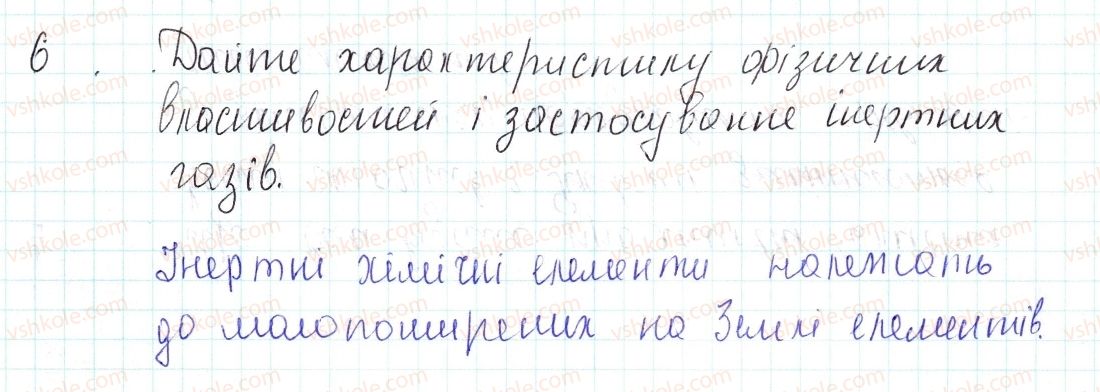 6. Дайте характеристику фізичних
властивостей і застосування інертних
газів.
Інертні хімічні елементи належать
до малопоширених на Землі елементів.